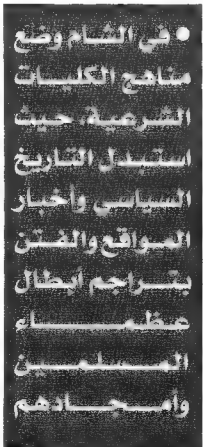 ● في الشام وضع
مناهج الكليات
الشرعية، حيث
استبدل التاريخ
السياسي وأخبار
المواقع والفتن
بتراجم أبطال
عظماء
المسلمين
وأمجادهم